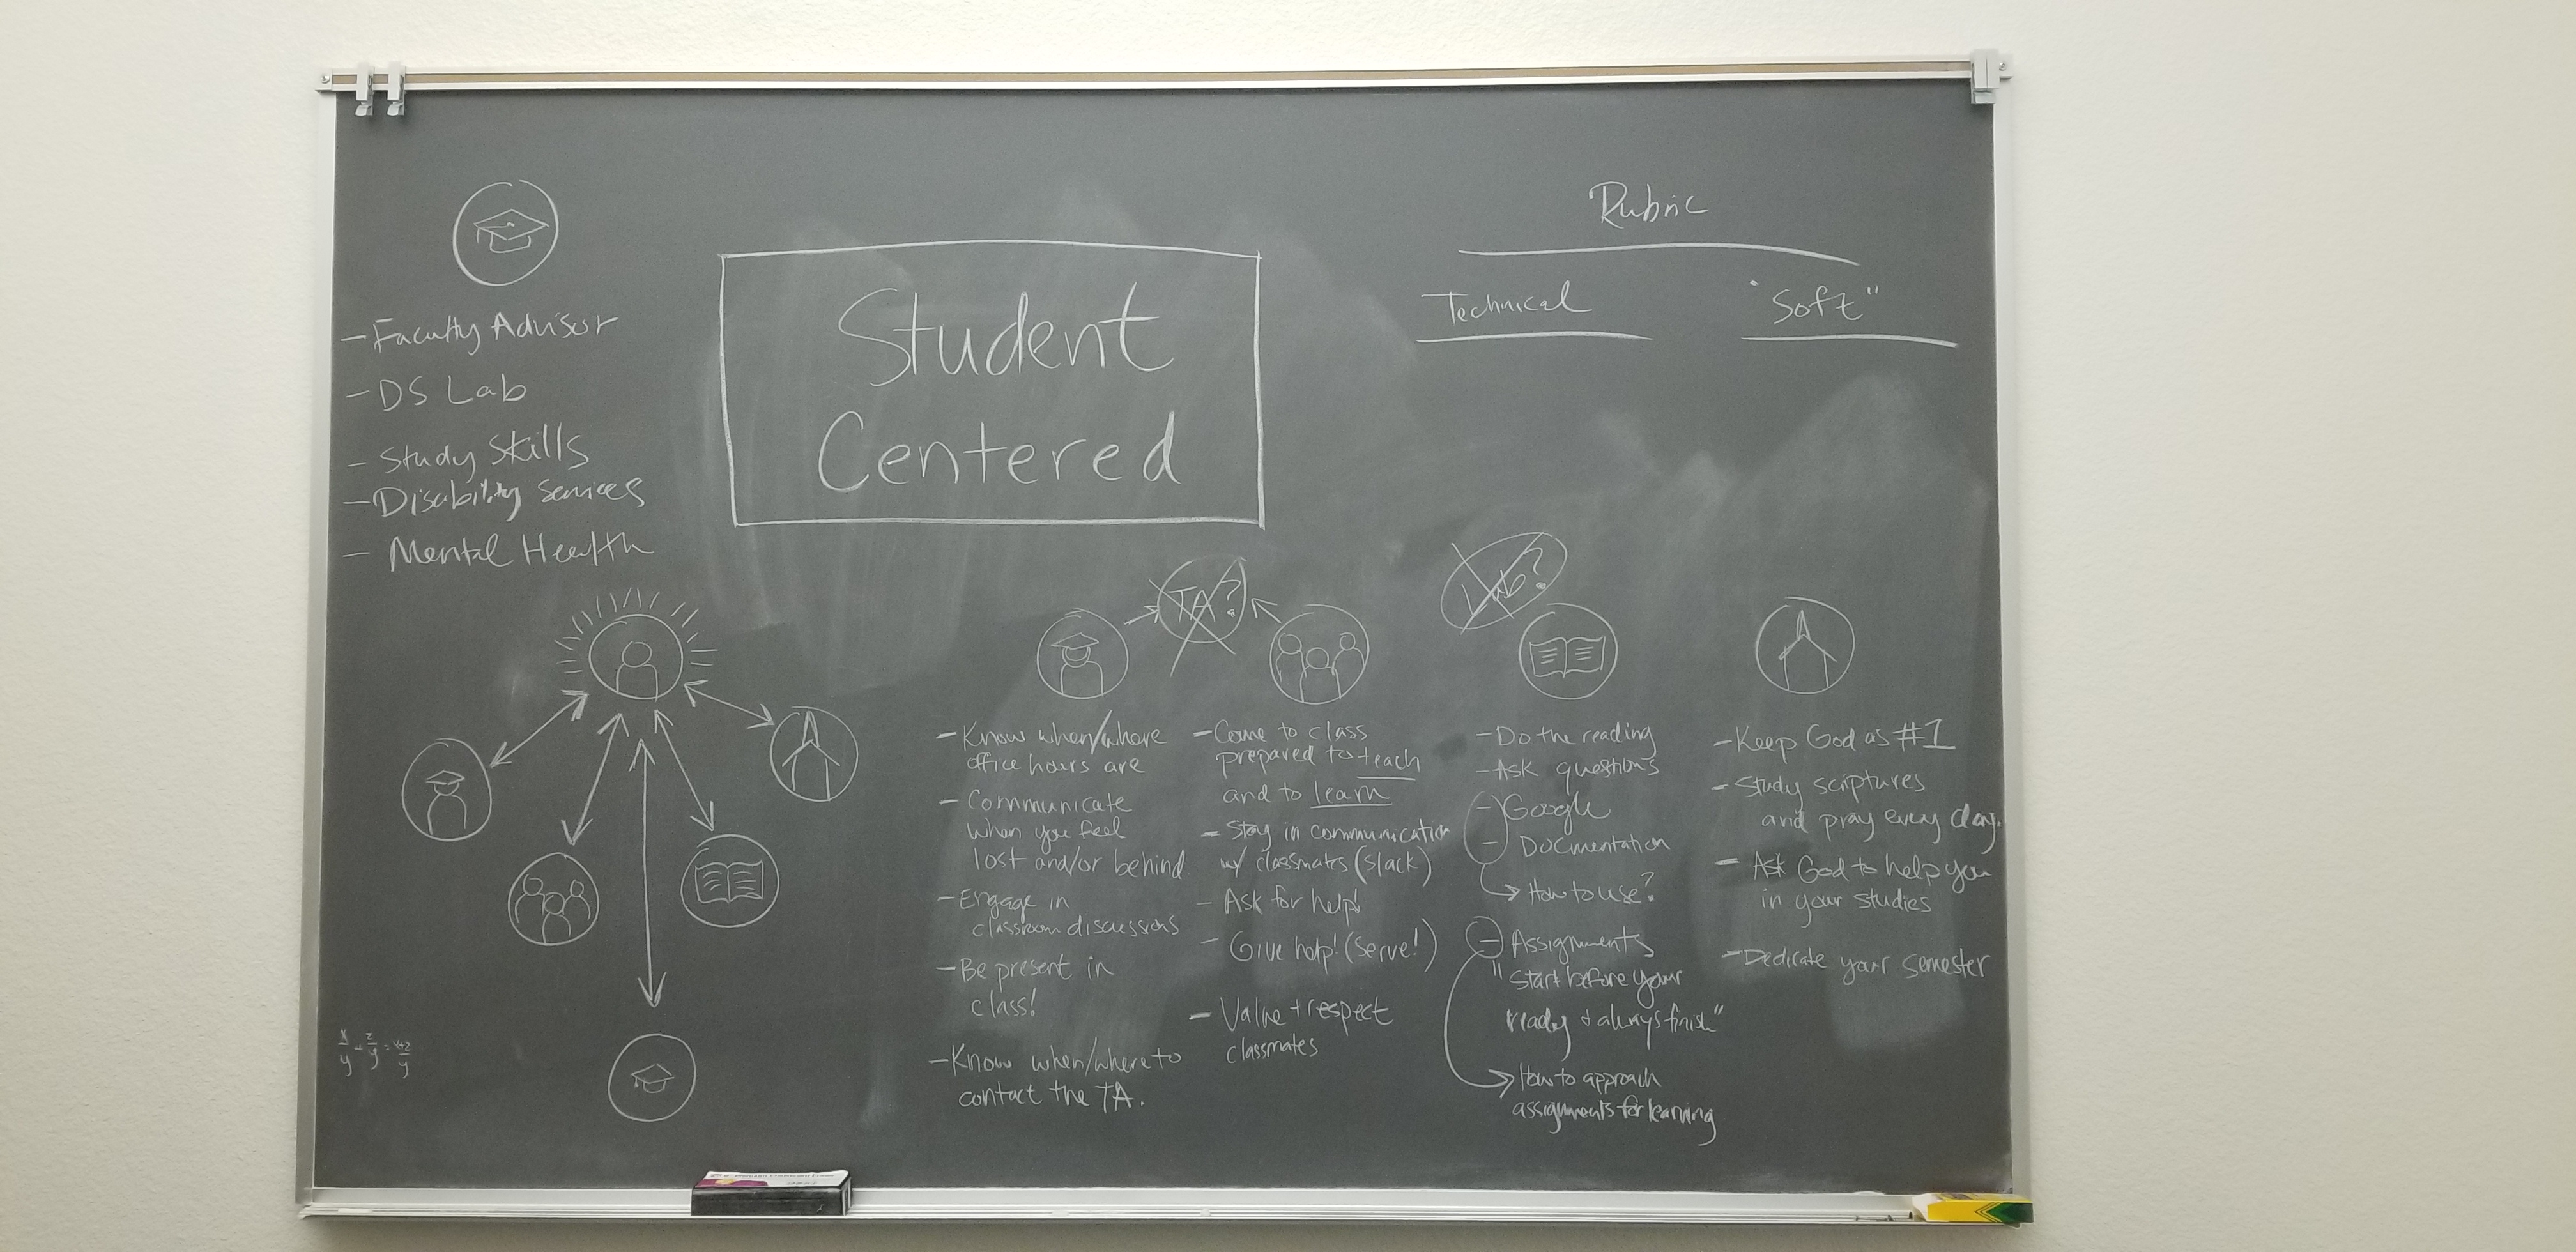 - Faculty Advisor
- DS Lab
- Study Skills
- Disability Services
- Mental Health
Student
Centered
Rubric
Technical
"Soft"
TA?
Lab?
- Know when/where
office hours are
- Communicate
when you feel
lost and/or behind
- Engage in
classroom discussions
- Be present in
class!
- Know when/where to
contact the TA.
- Come to class
prepared to teach
and to learn
- Stay in communication
w/ classmates (slack)
- Ask for help!
- Give help! (serve!)
- Value + respect
classmates
- Do the reading
- Ask questions
- Google
- Documentation
How to use?
- Assignments
"Start before your
ready + always finish"
How to approach
assignments for learning
- Keep God as #1
- Study scriptures
and pray every day.
- Ask God to help you
in your studies
- Dedicate your semester
x/y + z/y = x+z/y